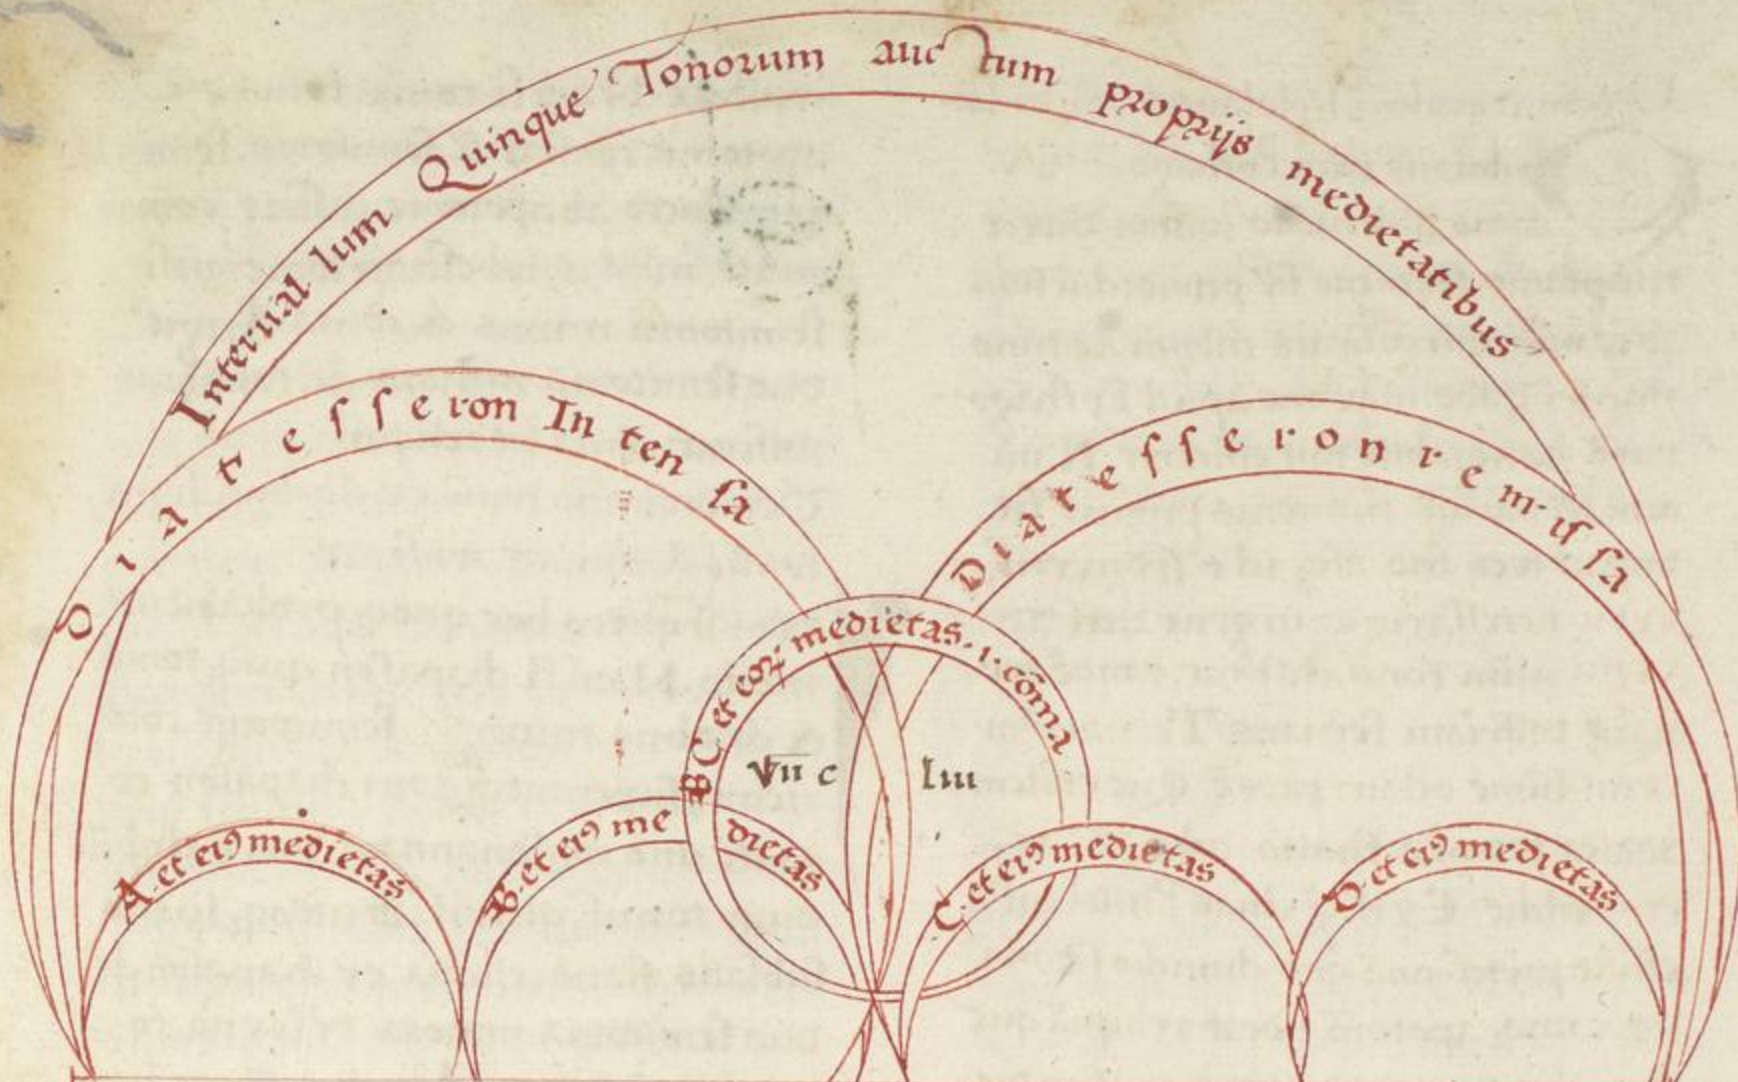 Interuallum Quinque Tonorum auctum proprijs medietatibus
Diatesseron Intensa
Diatesseron remissa
BC et eoꝝ medietas. i. cōma
V̅I̅I̅ c liii
A et eiꝰ medietas
B. et eiꝰ medietas
C. et eiꝰ medietas
D. et eiꝰ medietas